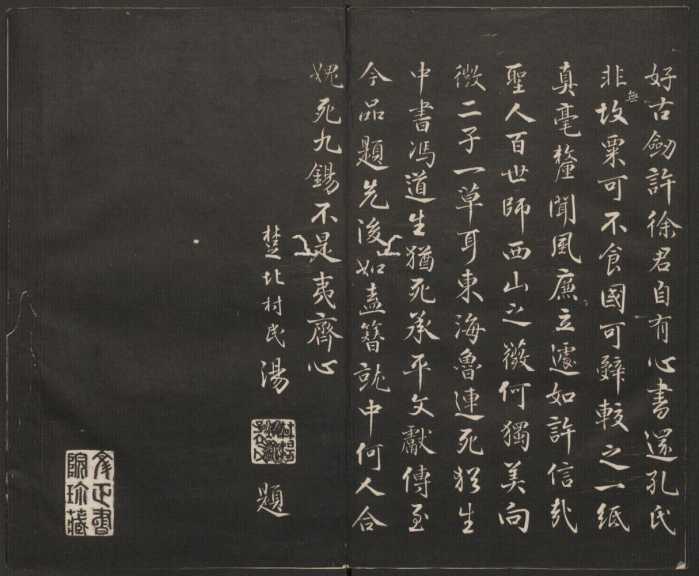 好古劒許徐君自有心書還孔氏
非無故粟可不食國可辭較之一紙
真毫釐聞風廉立遽如許信哉
聖人百世師西山之薇何獨美向
微二子一草耳東海魯連死猶生
中書馮道生猶死承平文獻傳至
今品題先後如盍簪就中何人合
媿死九錫不是夷齊心
楚北村民湯
題